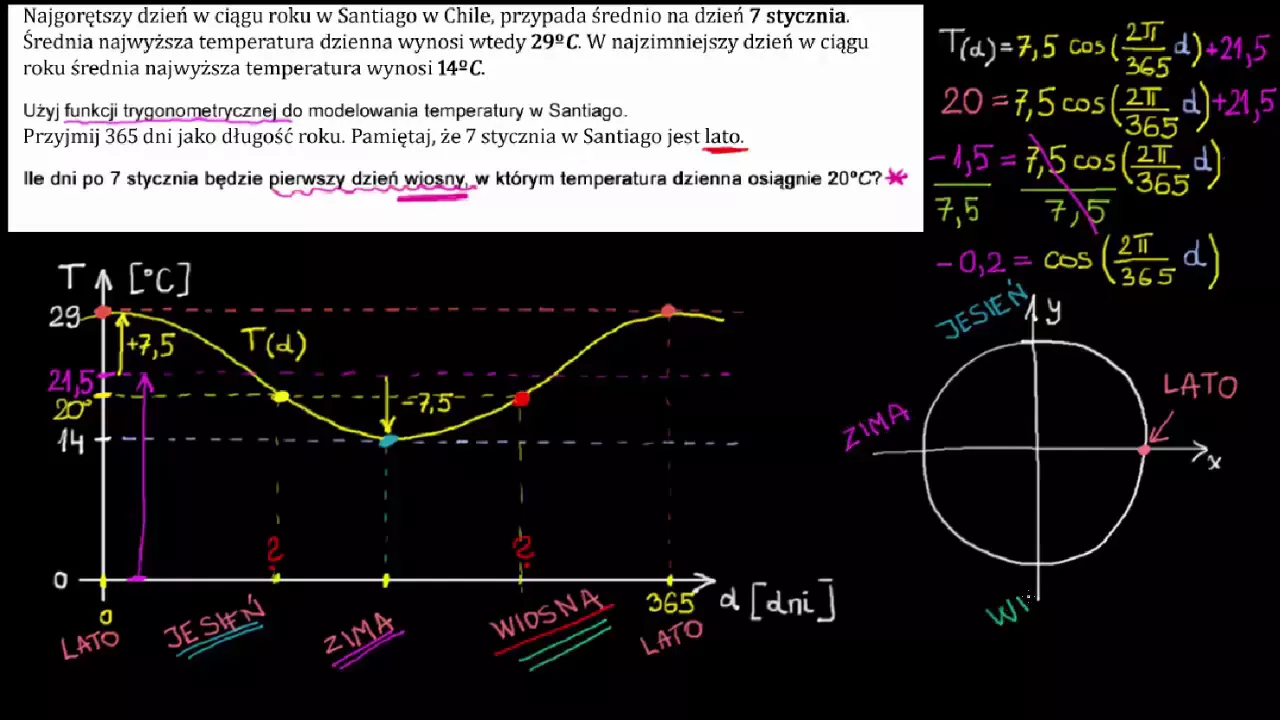 Najgorętszy dzień w ciągu roku w Santiago w Chile, przypada średnio na dzień 7 stycznia.
Średnia najwyższa temperatura dzienna wynosi wtedy 29ºC. W najzimniejszy dzień w ciągu
roku średnia najwyższa temperatura wynosi 14ºC.
Użyj funkcji trygonometrycznej do modelowania temperatury w Santiago.
Przyjmij 365 dni jako długość roku. Pamiętaj, że 7 stycznia w Santiago jest lato.
Ile dni po 7 stycznia będzie pierwszy dzień wiosny, w którym temperatura dzienna osiągnie 20°C?*
T(d)=7,5 cos(2π/365 d)+21,5
20=7,5cos(2π/365 d)+21,5
-1,5/7,5 = 7,5cos(2π/365 d)/7,5
-0,2 = cos(2π/365 d)
T [°C]
29
+7,5
T(d)
21,5
20°
-7,5
14
? ?
0
0 365 d [dni]
LATO JESIEŃ ZIMA WIOSNA LATO
JESIEŃ y
LATO
ZIMA
x
WI